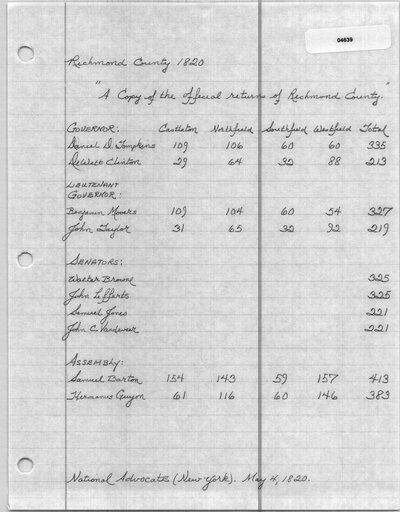 04639
Richmond County 1820
"A Copy of the official returns of Richmond County."
GOVERNOR: Castleton Northfield Southfield Westfield Total
Daniel D. Tompkins 109 106 60 60 335
DeWitt Clinton 29 64 32 88 213
LIEUTENANT
GOVERNOR:
Benjamin Mooers 109 104 60 54 327
John Taylor 31 65 32 92 219
SENATORS:
Walter Browne 325
John Lefferts 325
Samuel Jones 221
John C. Vandeveer 221
ASSEMBLY:
Samuel Barton 154 143 59 157 413
Hermanus Guyon 61 116 60 146 383
National Advocate (New York). May 4, 1820.